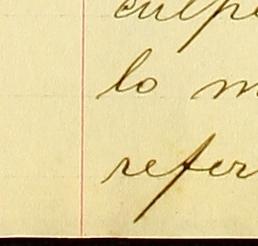 culpe
lo m
refer